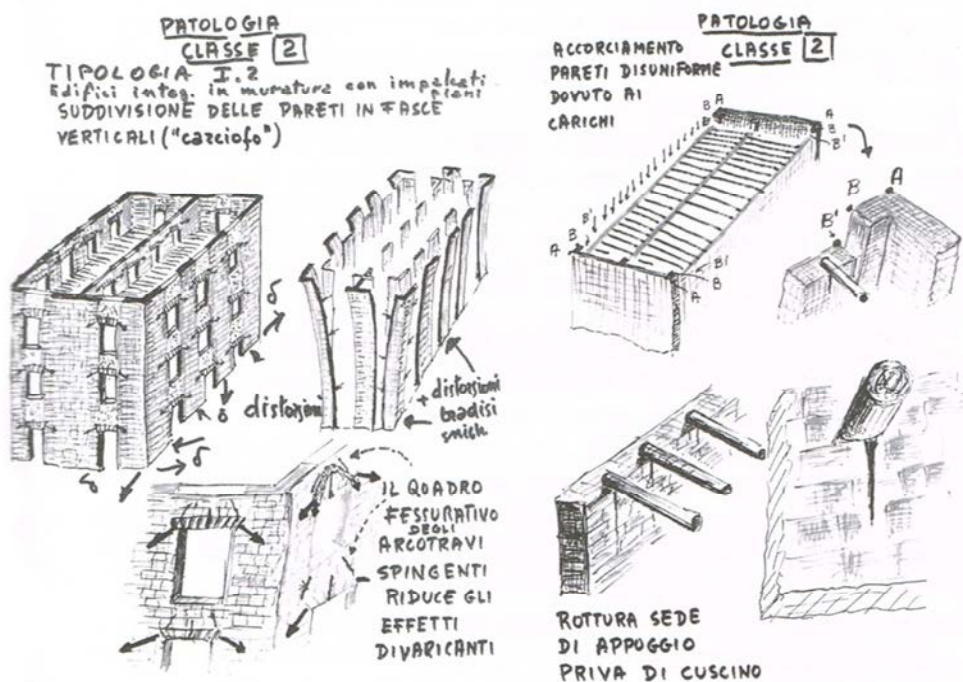 PATOLOGIA
CLASSE 2
TIPOLOGIA I.2
Edifici integ. in muratura con impalcati
piani
SUDDIVISIONE DELLE PARETI IN FASCE
VERTICALI ("carciofo")
δ
δ
distorsioni
δ
δ
+ distorsioni
bradisi
smich
IL QUADRO
FESSURATIVO
DEGLI
ARCOTRAVI
SPINGENTI
RIDUCE GLI
EFFETTI
DIVARICANTI
PATOLOGIA
CLASSE 2
ACCORCIAMENTO
PARETI DISUNIFORME
DOVUTO AI
CARICHI
B A
A
B
B'
B'
A B
B'
B
A
A
B
B'
ROTTURA SEDE
DI APPOGGIO
PRIVA DI CUSCINO